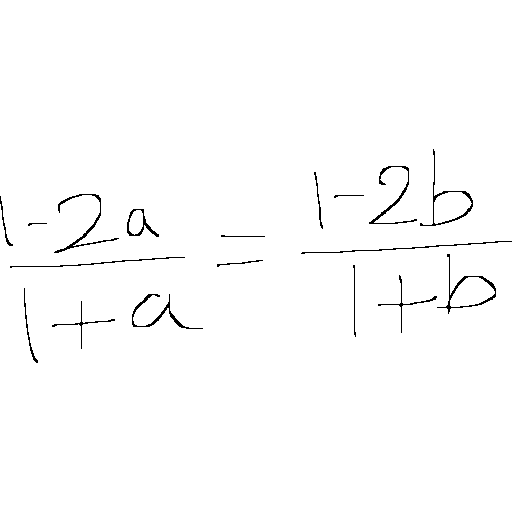 \frac{1-2a}{1+a} = \frac{1-2b}{1+b}